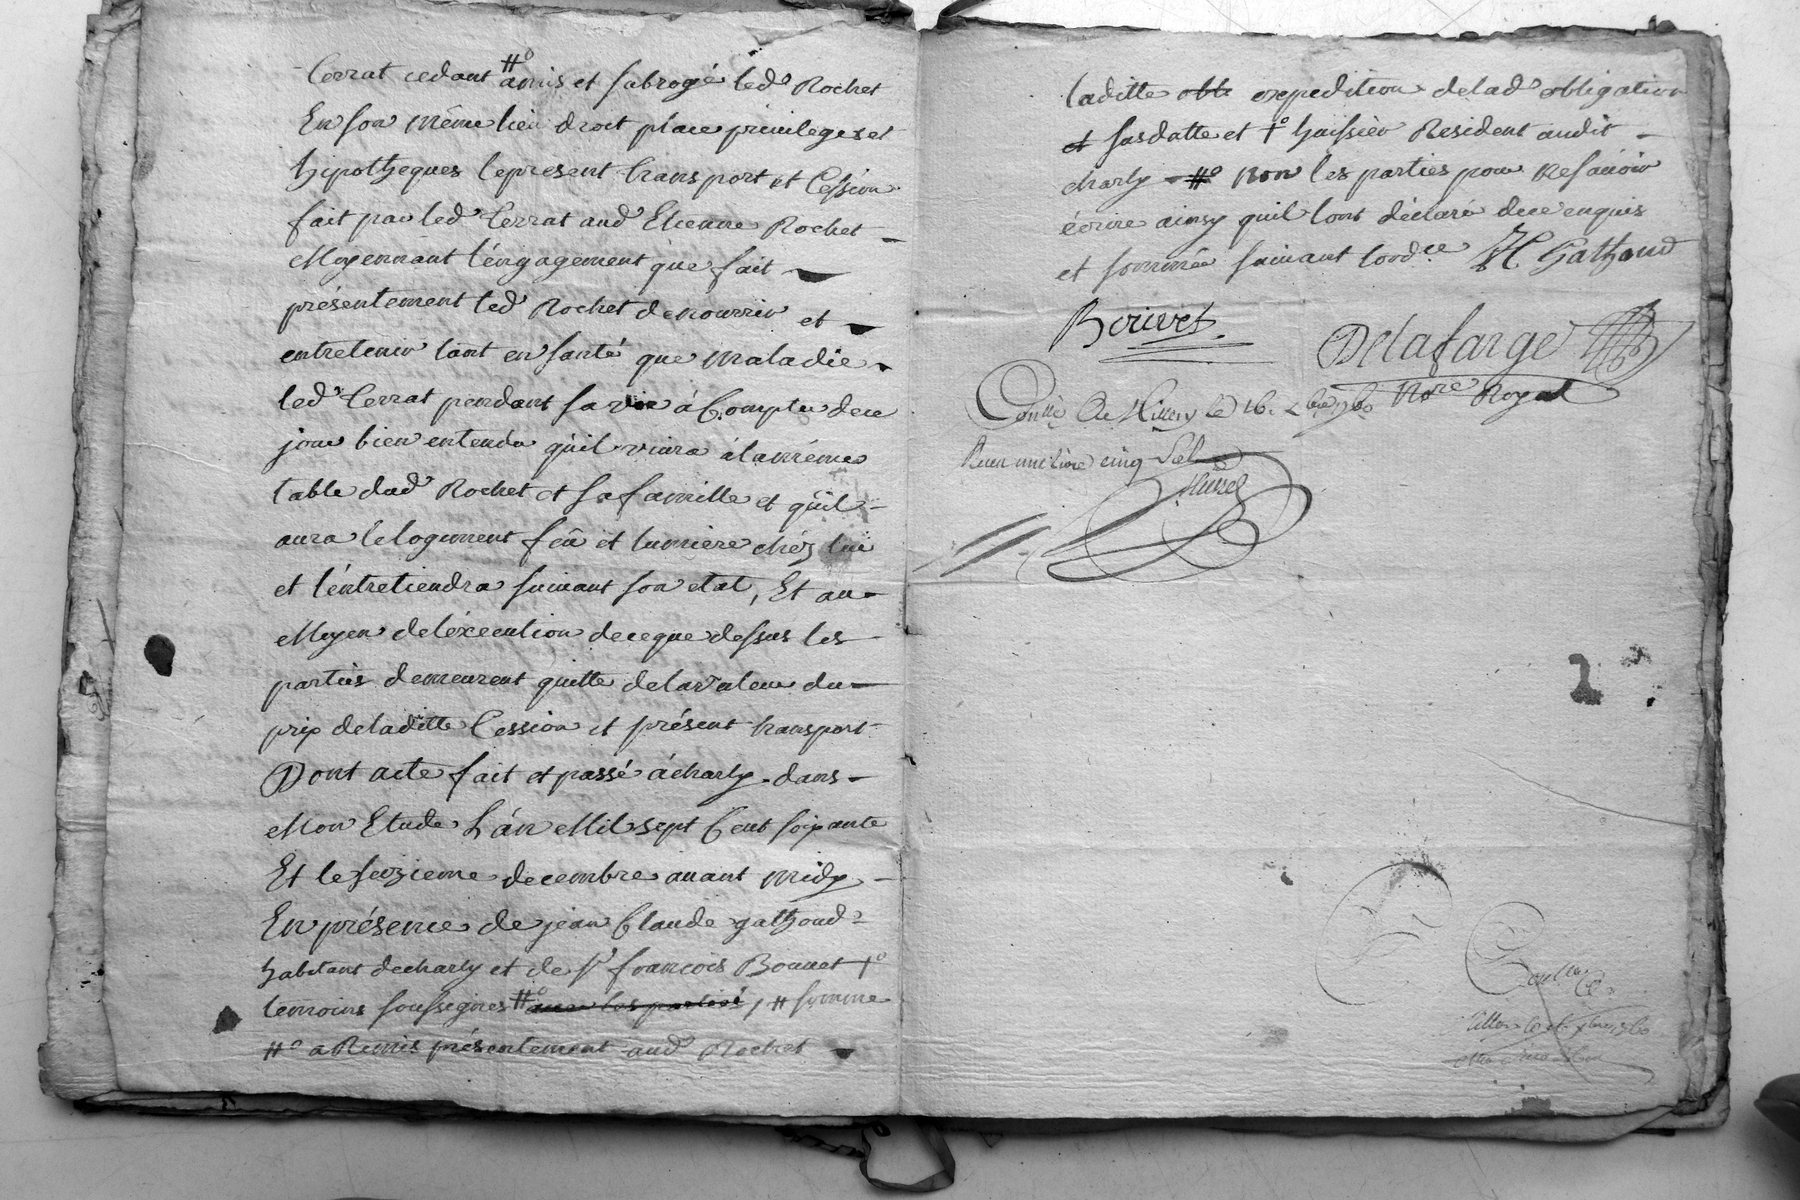 Cerrat cedant #° a mis et subrogé led' Rochet
En son même lieu droit place privileges et
hipotheques le present transport et Cession
fait par led' Cerrat aud' Etienne Rochet
Moyennant l'éngagement que fait
présentement led' Rochet de nourrir et
entretenir tant en santé que maladie
led' Cerrat pendant sa vie à Compter de ce
jour bien entendu qu'il vivra à la même
table dud' Rochet et sa famille et qu'il
aura le logement feû et lumiere chéz lui
et l'éntretiendra suivant son etat, Et au
Moyen de l'éxécution de ce que dessus les
parties demeurent quitte de la valeur du
prix de laditte Cession et présent transport
Dont acte fait et passé à charly dans
Mon Etude L'án Mil sept Cent soixante
Et le seizieme decembre avant midy
En présence de jean Claude gathoud
habitant de charly et de Sr françois Bouvet +°
temoins soussignés #° avec les parties / # somme
#° a Remis présentement aud' Rochet
laditte obli expedition de lad' obligation
et susdatte et +° huissier Resident audit
charly #° non les parties pour ne savoir
écrire ainsy qu'il l'ont déclaré de ce enquis
et sommée suivant l'ord.ce JC Gathoud
Bouvet
Delafarge
Nore Royal
Conllé A Millery le 16. Xbre 1760
Reçu une livre cinq Sols